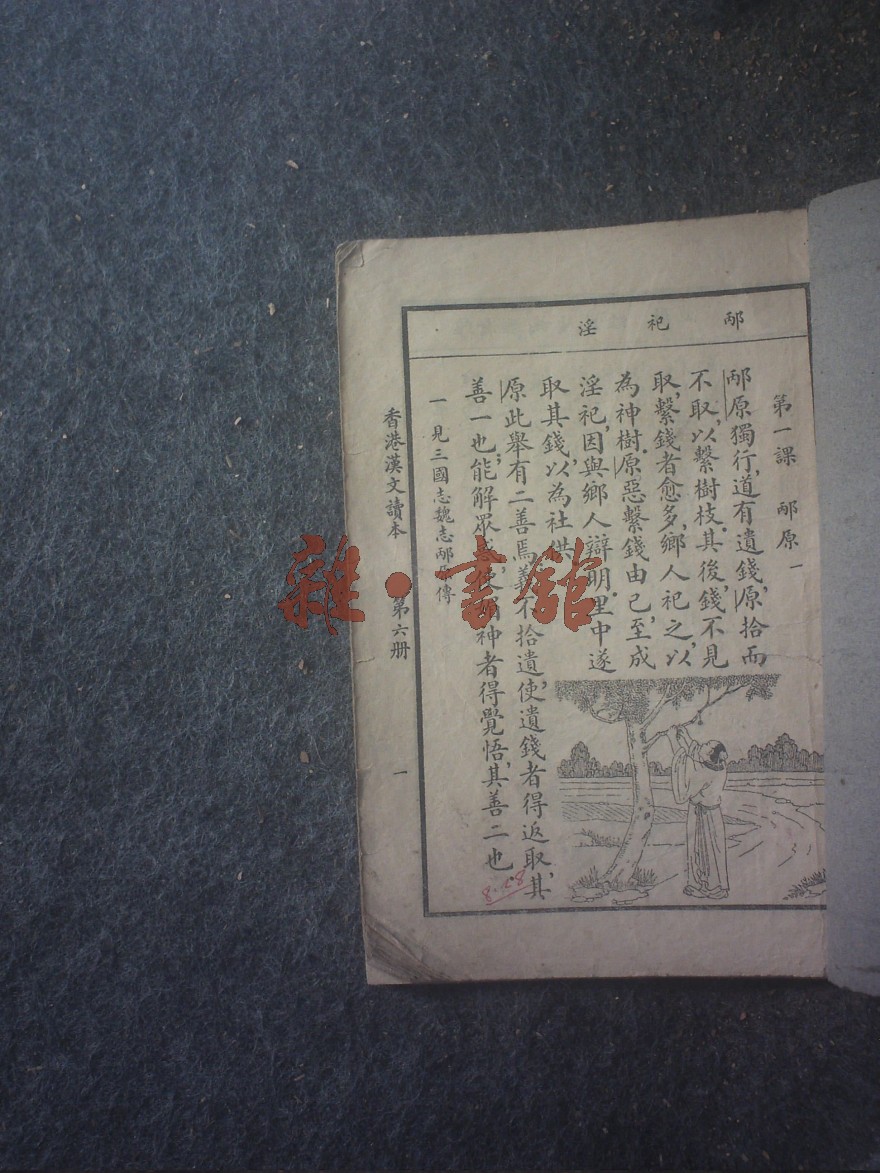 邴祀淫
第一課 邴原 一
邴原獨行,道有遺錢,原拾而
不取,以繫樹枝.其後,錢不見
取,繫錢者愈多,鄉人祀之,以
為神樹.原惡繫錢由己至成
淫祀,因與鄉人辯明.里中遂
取其錢,以為社供
原此舉有二善焉.義不拾遺,使遺錢者得返取,其
善一也;能解眾 使 神者得覺悟,其善二也.
一 見三國志魏志邴原傳
香港漢文讀本 第六册 一
雜·書館